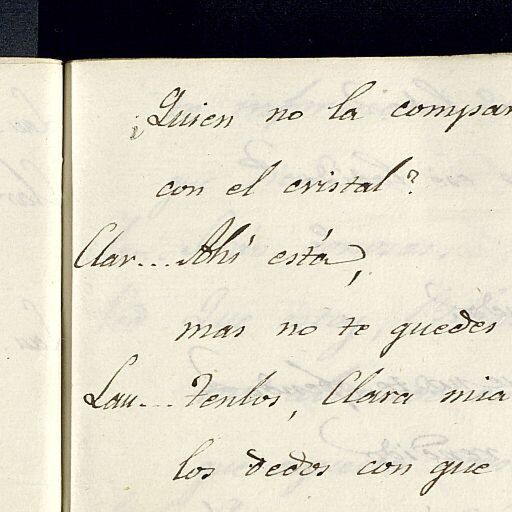 ¿Quien no la compar
con el cristal?
Clar... Ahi está,
mas no te quedes
Lau... Tenlos, Clara mia
los dedos con que